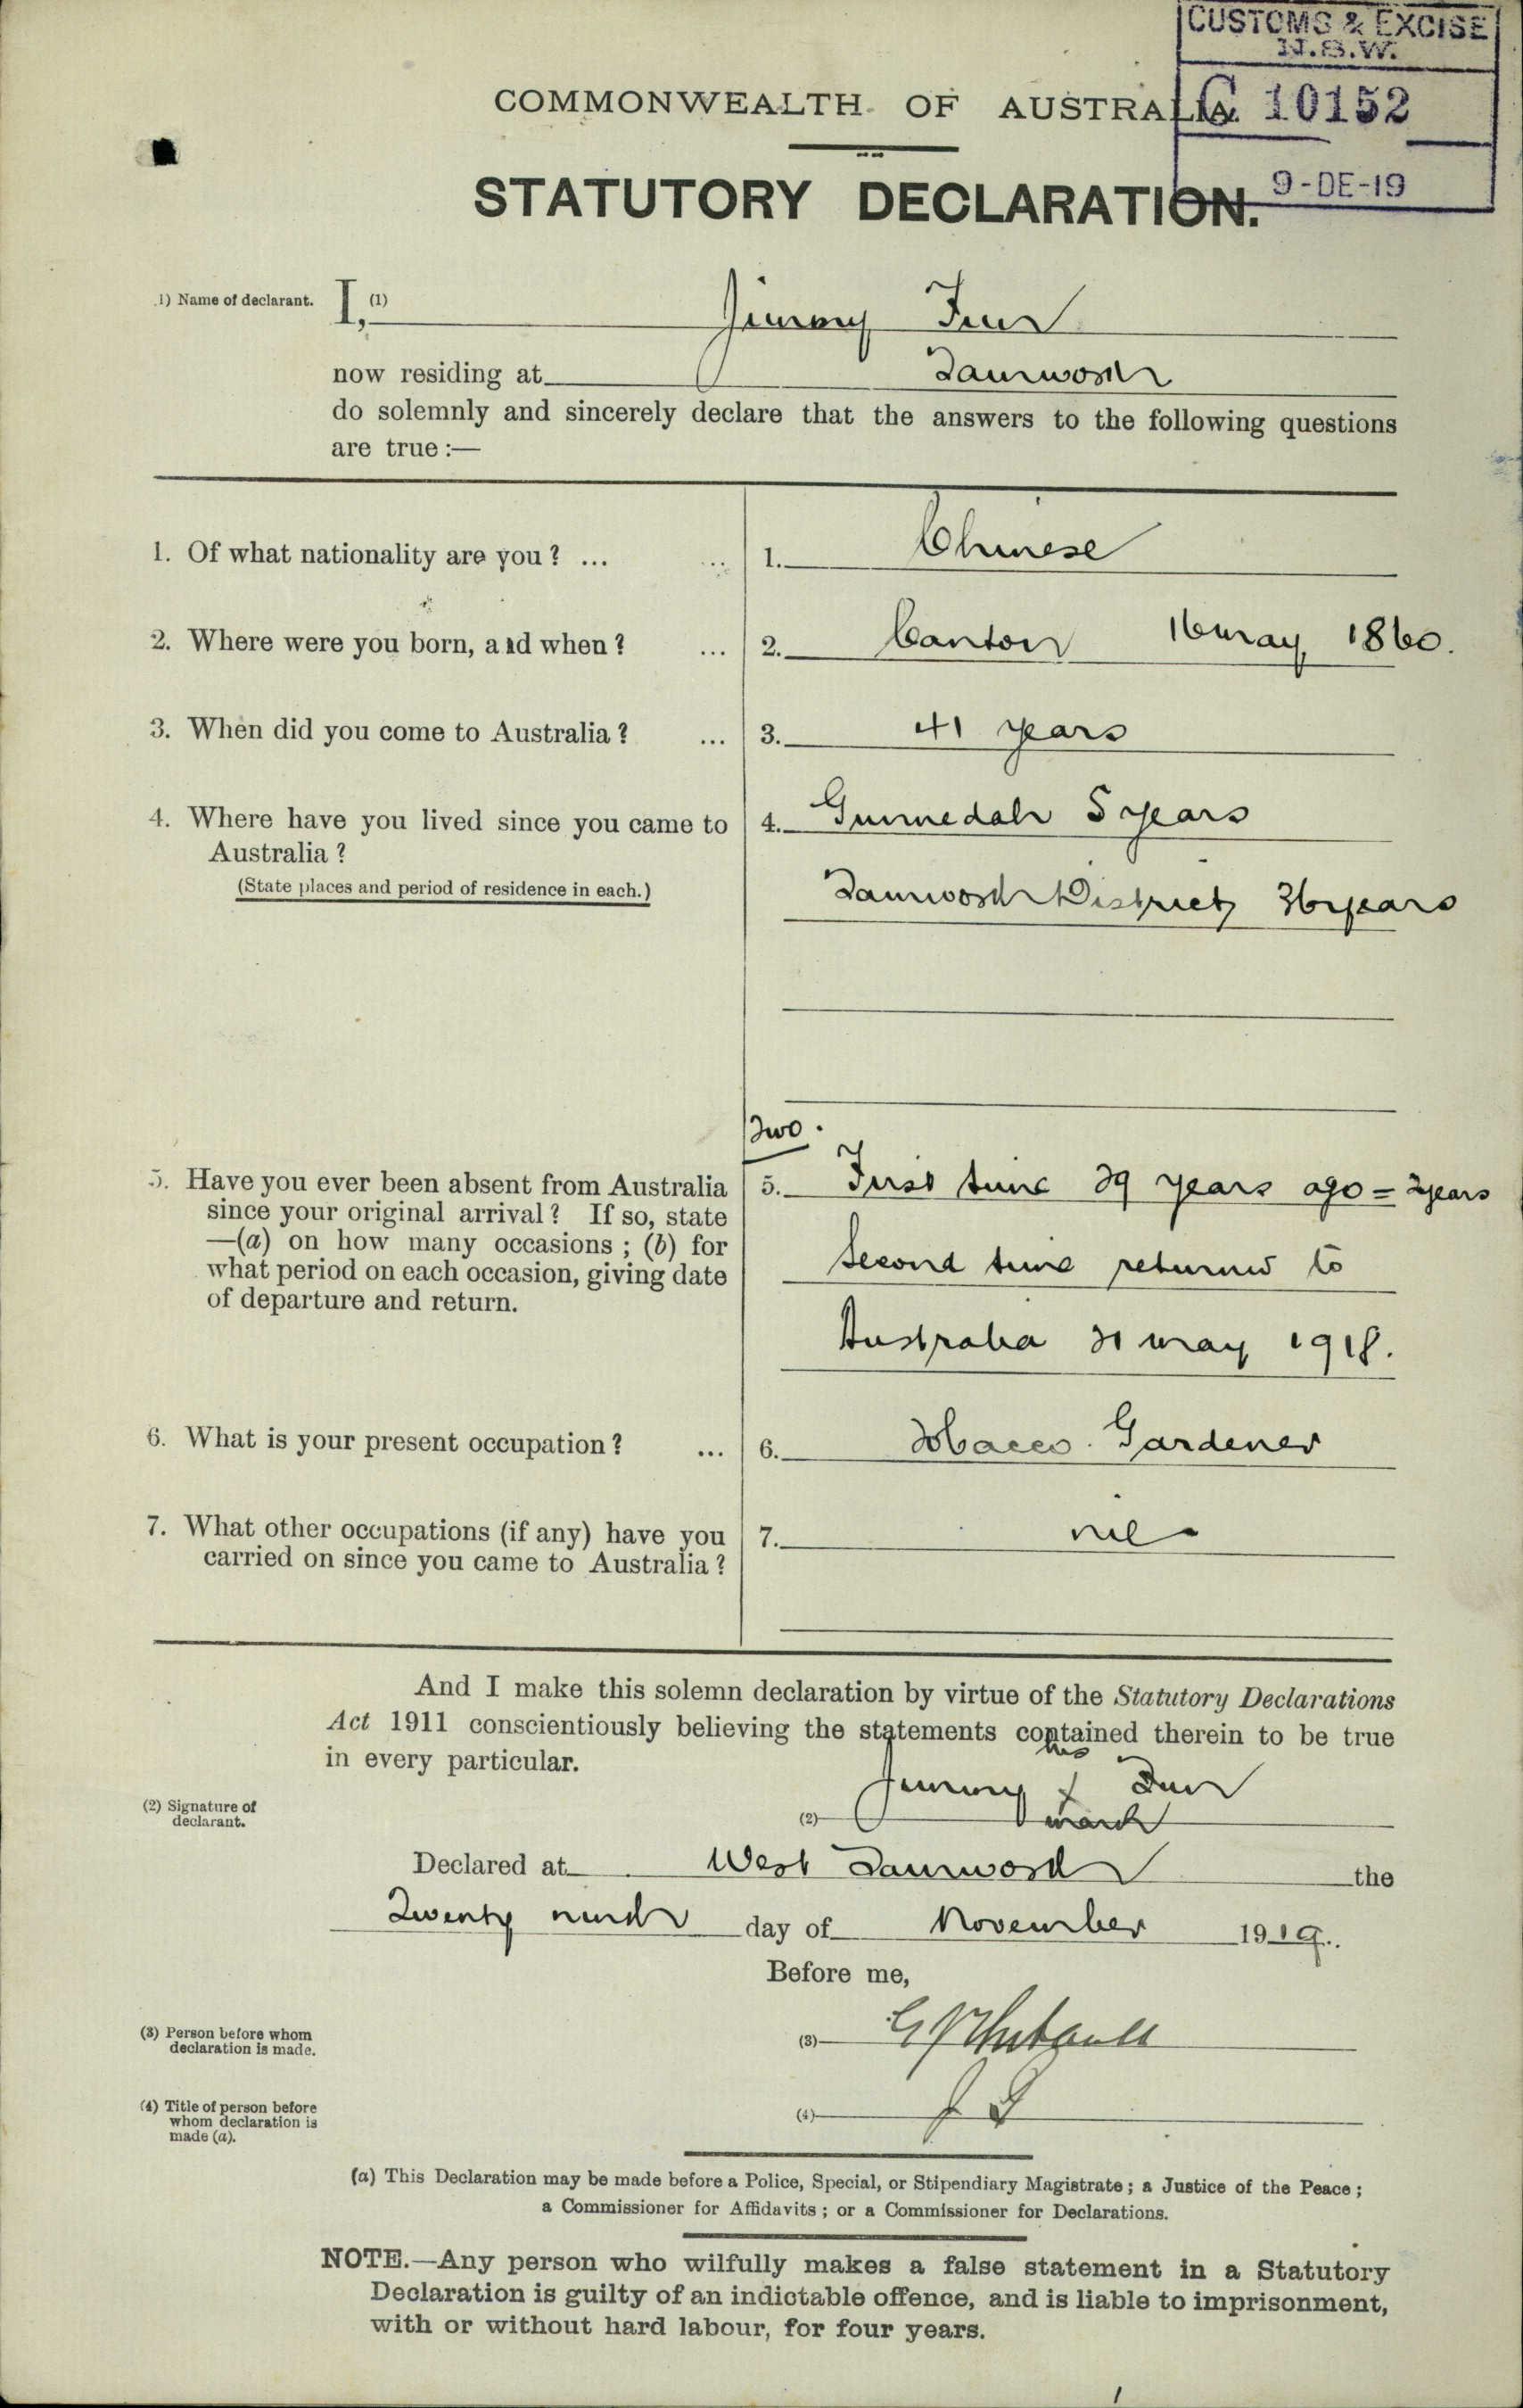 CUSTOMS & EXCISE
N.S.W.
C 10152
9-DE-19
COMMONWEALTH OF AUSTRALIA.
STATUTORY DECLARATION.
(1) Name of declarant. I, (1) Jimmy Fun
now residing at Tamworth
do solemnly and sincerely declare that the answers to the following questions
are true :—
1. Of what nationality are you ? ... ... 1. Chinese
2. Where were you born, and when ? ... 2. Canton 16 May 1860.
3. When did you come to Australia ? ... 3. 41 years
4. Where have you lived since you came to 4. Gunnedah 5 years
Australia ?
(State places and period of residence in each.) Tamworth District 36 years
Two.
5. Have you ever been absent from Australia 5. First time 29 years ago = 2 years
since your original arrival ? If so, state
—(a) on how many occasions ; (b) for Second time returned to
what period on each occasion, giving date
of departure and return.
Australia 31 May 1918.
6. What is your present occupation ? ... 6. Tobacco Gardener
7. What other occupations (if any) have you 7. nil
carried on since you came to Australia ?
And I make this solemn declaration by virtue of the Statutory Declarations
Act 1911 conscientiously believing the statements contained therein to be true
in every particular.
his
(2) Signature of declarant. (2) Jimmy x Fun
mark
Declared at West Tamworth the
Twenty ninth day of November 1919.
Before me,
(3) Person before whom
declaration is made. (3)
(4) Title of person before
whom declaration is
made (a). (4) J P
(a) This Declaration may be made before a Police, Special, or Stipendiary Magistrate ; a Justice of the Peace ;
a Commissioner for Affidavits ; or a Commissioner for Declarations.
NOTE.—Any person who wilfully makes a false statement in a Statutory
Declaration is guilty of an indictable offence, and is liable to imprisonment,
with or without hard labour, for four years.